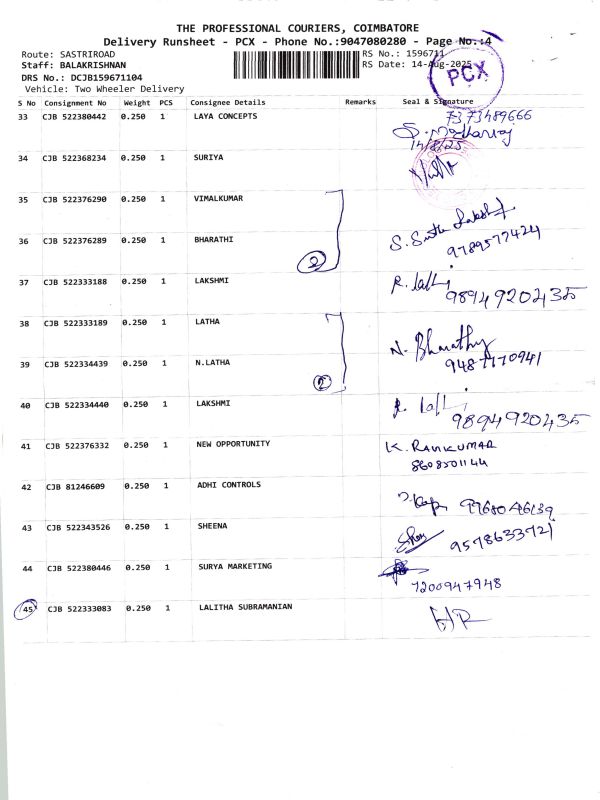 THE PROFESSIONAL COURIERS, COIMBATORE
Delivery Runsheet - PCX - Phone No.:9047080280 - Page No.:4
Route: SASTRIROAD
RS No.: 1596711
Staff: BALAKRISHNAN
RS Date: 14-Aug-2025
DRS No.: DCJB159671104
PCX
Vehicle: Two Wheeler Delivery
S No Consignment No Weight PCS Consignee Details Remarks Seal & Signature
33 CJB 522380442 0.250 1 LAYA CONCEPTS 7373489666
14/8/25
34 CJB 522368234 0.250 1 SURIYA
35 CJB 522376290 0.250 1 VIMALKUMAR
36 CJB 522376289 0.250 1 BHARATHI 2 9789577424
37 CJB 522333188 0.250 1 LAKSHMI 9894920435
38 CJB 522333189 0.250 1 LATHA N. Bharathy
39 CJB 522334439 0.250 1 N.LATHA 2 9487770941
40 CJB 522334440 0.250 1 LAKSHMI 9894920435
41 CJB 522376332 0.250 1 NEW OPPORTUNITY K. RAVIKUMAR
8608501144
42 CJB 81246609 0.250 1 ADHI CONTROLS
43 CJB 522343526 0.250 1 SHEENA 9578633721
44 CJB 522380446 0.250 1 SURYA MARKETING 7200947948
45 CJB 522333083 0.250 1 LALITHA SUBRAMANIAN